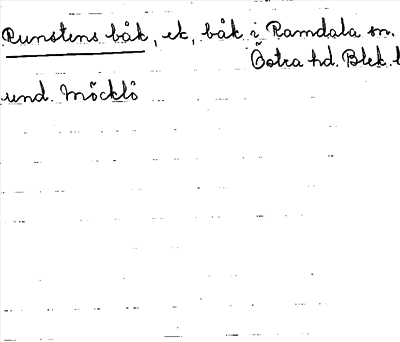 Runstens båk, ek, båk i Ramdala sn.
Östra hd. Blek. l
und. Möcklö